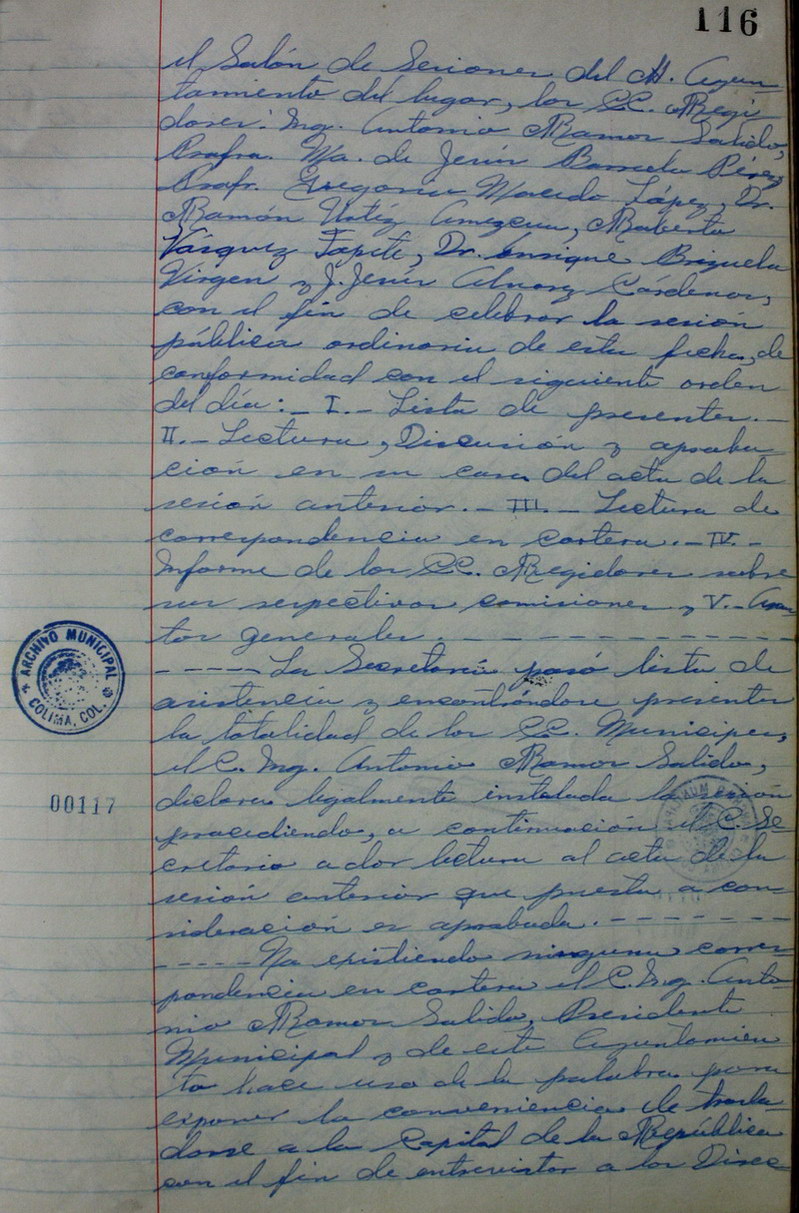 116
el Salón de Sesiones del H. Ayun-
tamiento del lugar, los CC. Regi-
dores: Ing. Antonio Ramos Salido,
Profra. Ma. de Jesús Barreda Pérez,
Profr. Gregorio Macedo López, Dr.
Ramón Ustiz Amezcua, Roberto
Vásquez Topete, Dr. Enrique Brizuela
Virgen y J. Jesús Alvarez Cárdenas,
con el fin de celebrar la sesión
pública ordinaria de esta fecha, de
conformidad con el siguiente orden
del día:- I.- Lista de presentes.-
II.- Lectura, Discusión y aproba-
ción en su caso del acta de la
sesión anterior.- III.- Lectura de
correspondencia en cartera.- IV.-
Informe de los CC. Regidores sobre
sus respectivas comisiones y V.- Asun-
tos generales. - - - - - - - - - - -
- - - - - La Secretaría pasó lista de
asistencia y encontrándose presentes
la totalidad de los CC. Munícipes,
el C. Ing. Antonio Ramos Salido,
declara legalmente instalada la sesión
procediendo, a continuación el C. Se-
cretario a dar lectura al acta de la
sesión anterior que puesta a con-
sideración es aprobada. - - - - - - -
- - - - - No existiendo ninguna corres-
pondencia en cartera el C. Ing. Anto-
nio Ramos Salido, Presidente
Municipal y de este Ayuntamien-
to hace uso de la palabra para
exponer la conveniencia de trasla-
darse a la Capital de la República
con el fin de entrevistar a los Direc-
ARCHIVO MUNICIPAL
COLIMA, COL.
00117